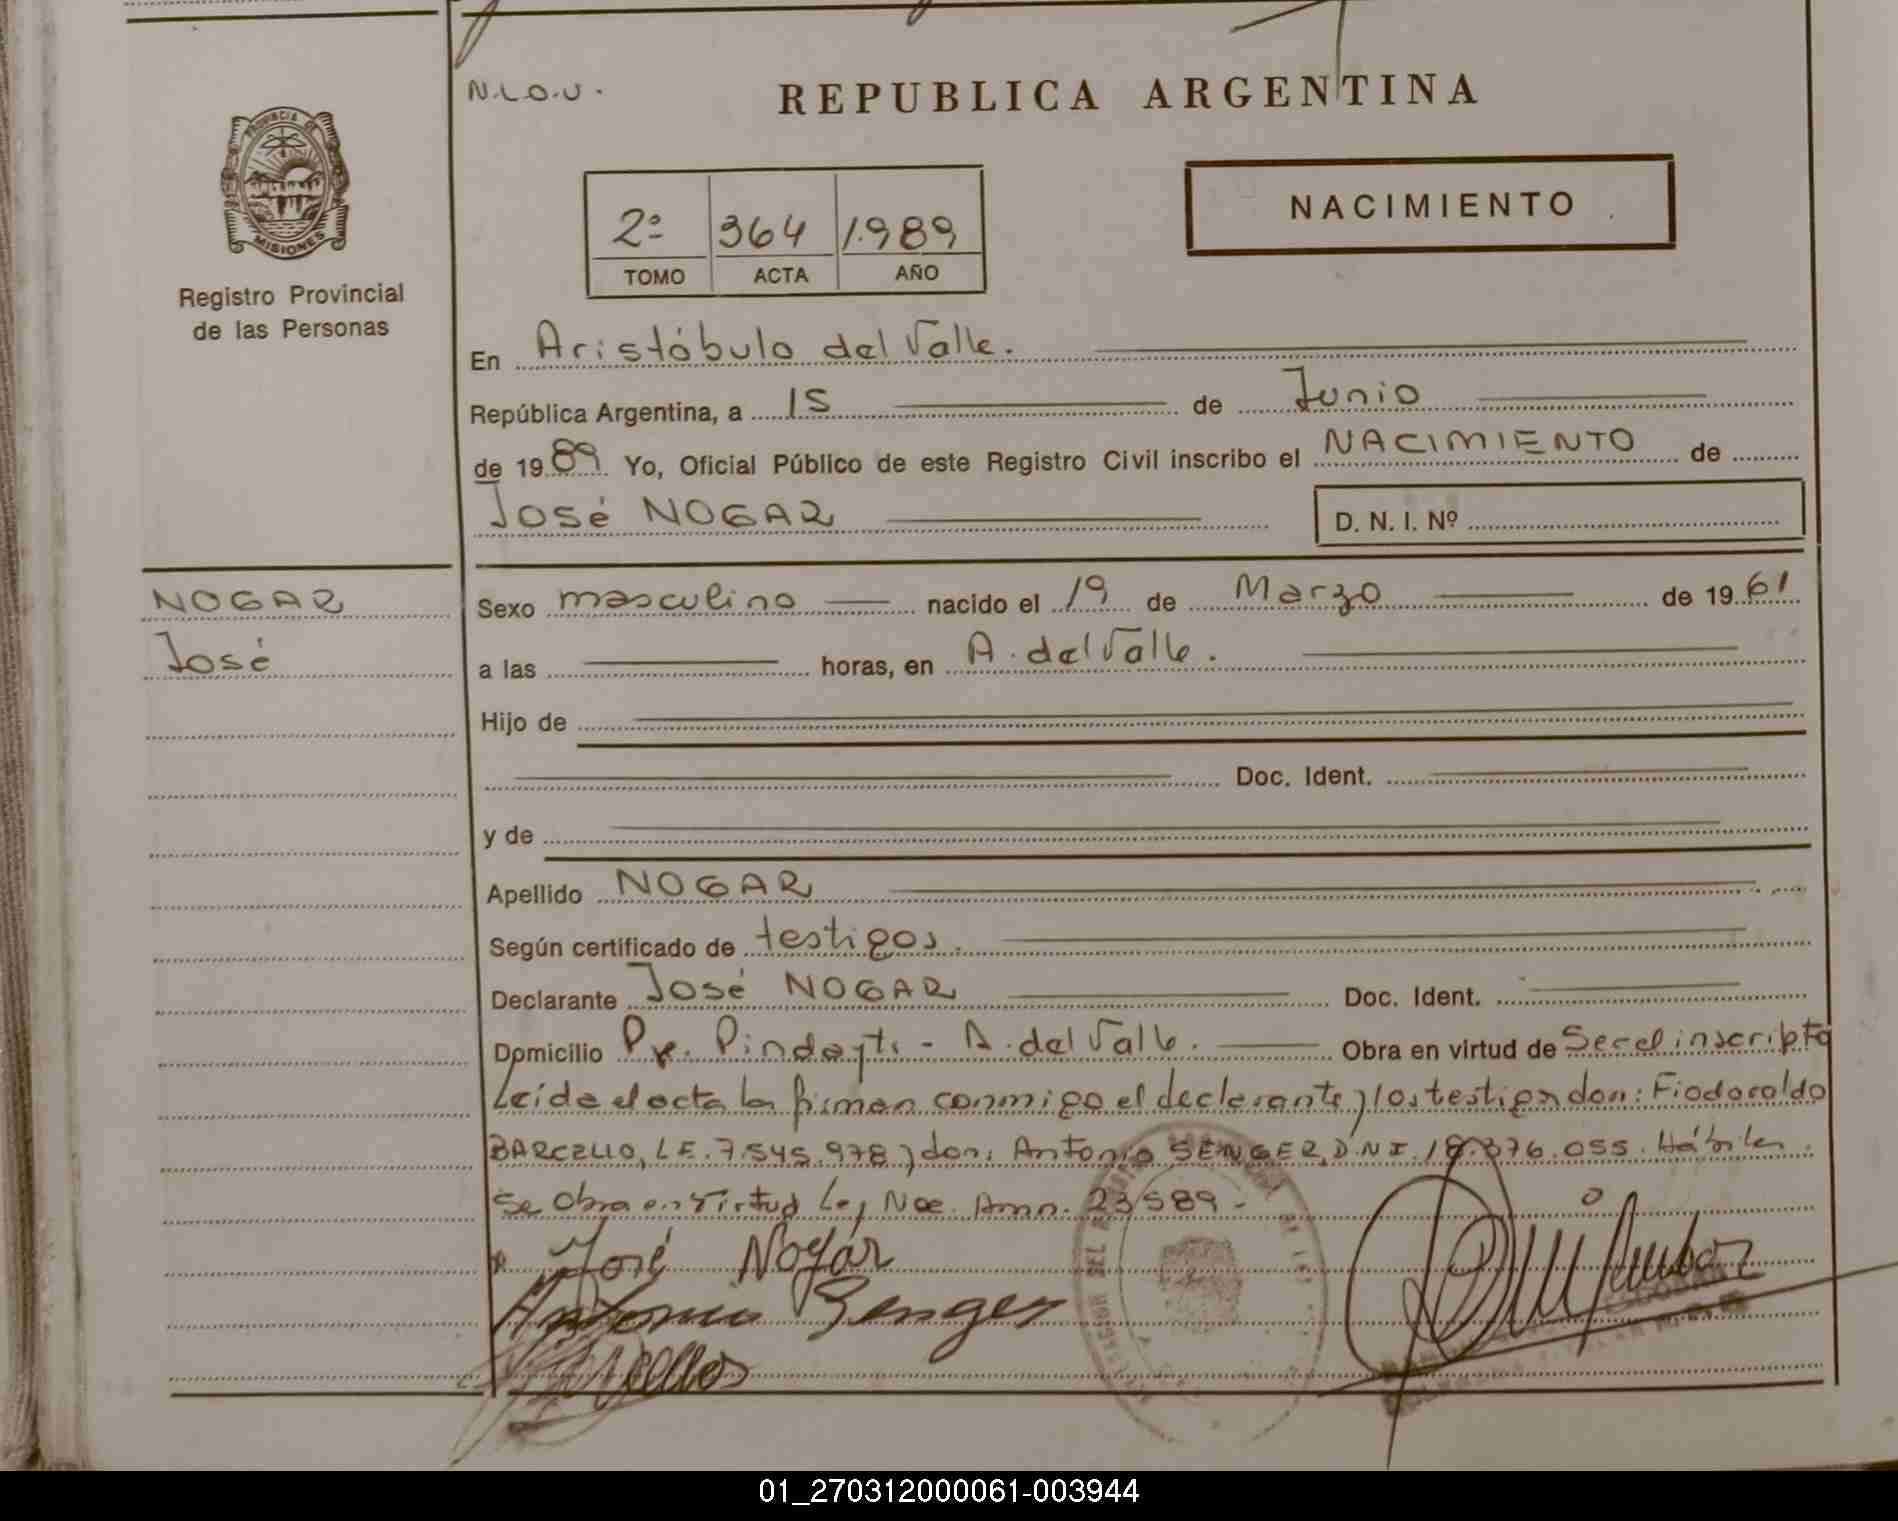 N.L.O.U.
REPUBLICA ARGENTINA
PROVINCIA DE
MISIONES
Registro Provincial
de las Personas
2º 364 1.989
TOMO ACTA AÑO
NACIMIENTO
En Aristóbulo del Valle.
República Argentina, a 15 de Junio
de 19 89 Yo, Oficial Público de este Registro Civil inscribo el NACIMIENTO de
José NOGAR
D. N. I. Nº
NOGAR
José
Sexo masculino nacido el 19 de Marzo de 19 61
a las horas, en A. del Valle.
Hijo de
Doc. Ident.
y de
Apellido NOGAR
Según certificado de testigos.
Declarante José NOGAR Doc. Ident.
Domicilio Pindayti - A. del Valle. Obra en virtud de Ser el inscripto
Leída el acta la firman conmigo el declarante y los testigos don: Fiodoroldo
BARCELLO, L.E. 7.545.978 y don: Antonio SENGER, D.N.I. 18.376.055. Hábiles.
Se Obra en virtud Ley Nac. Amn. 23589.-
José Nogar
Antonio Senger
01_270312000061-003944